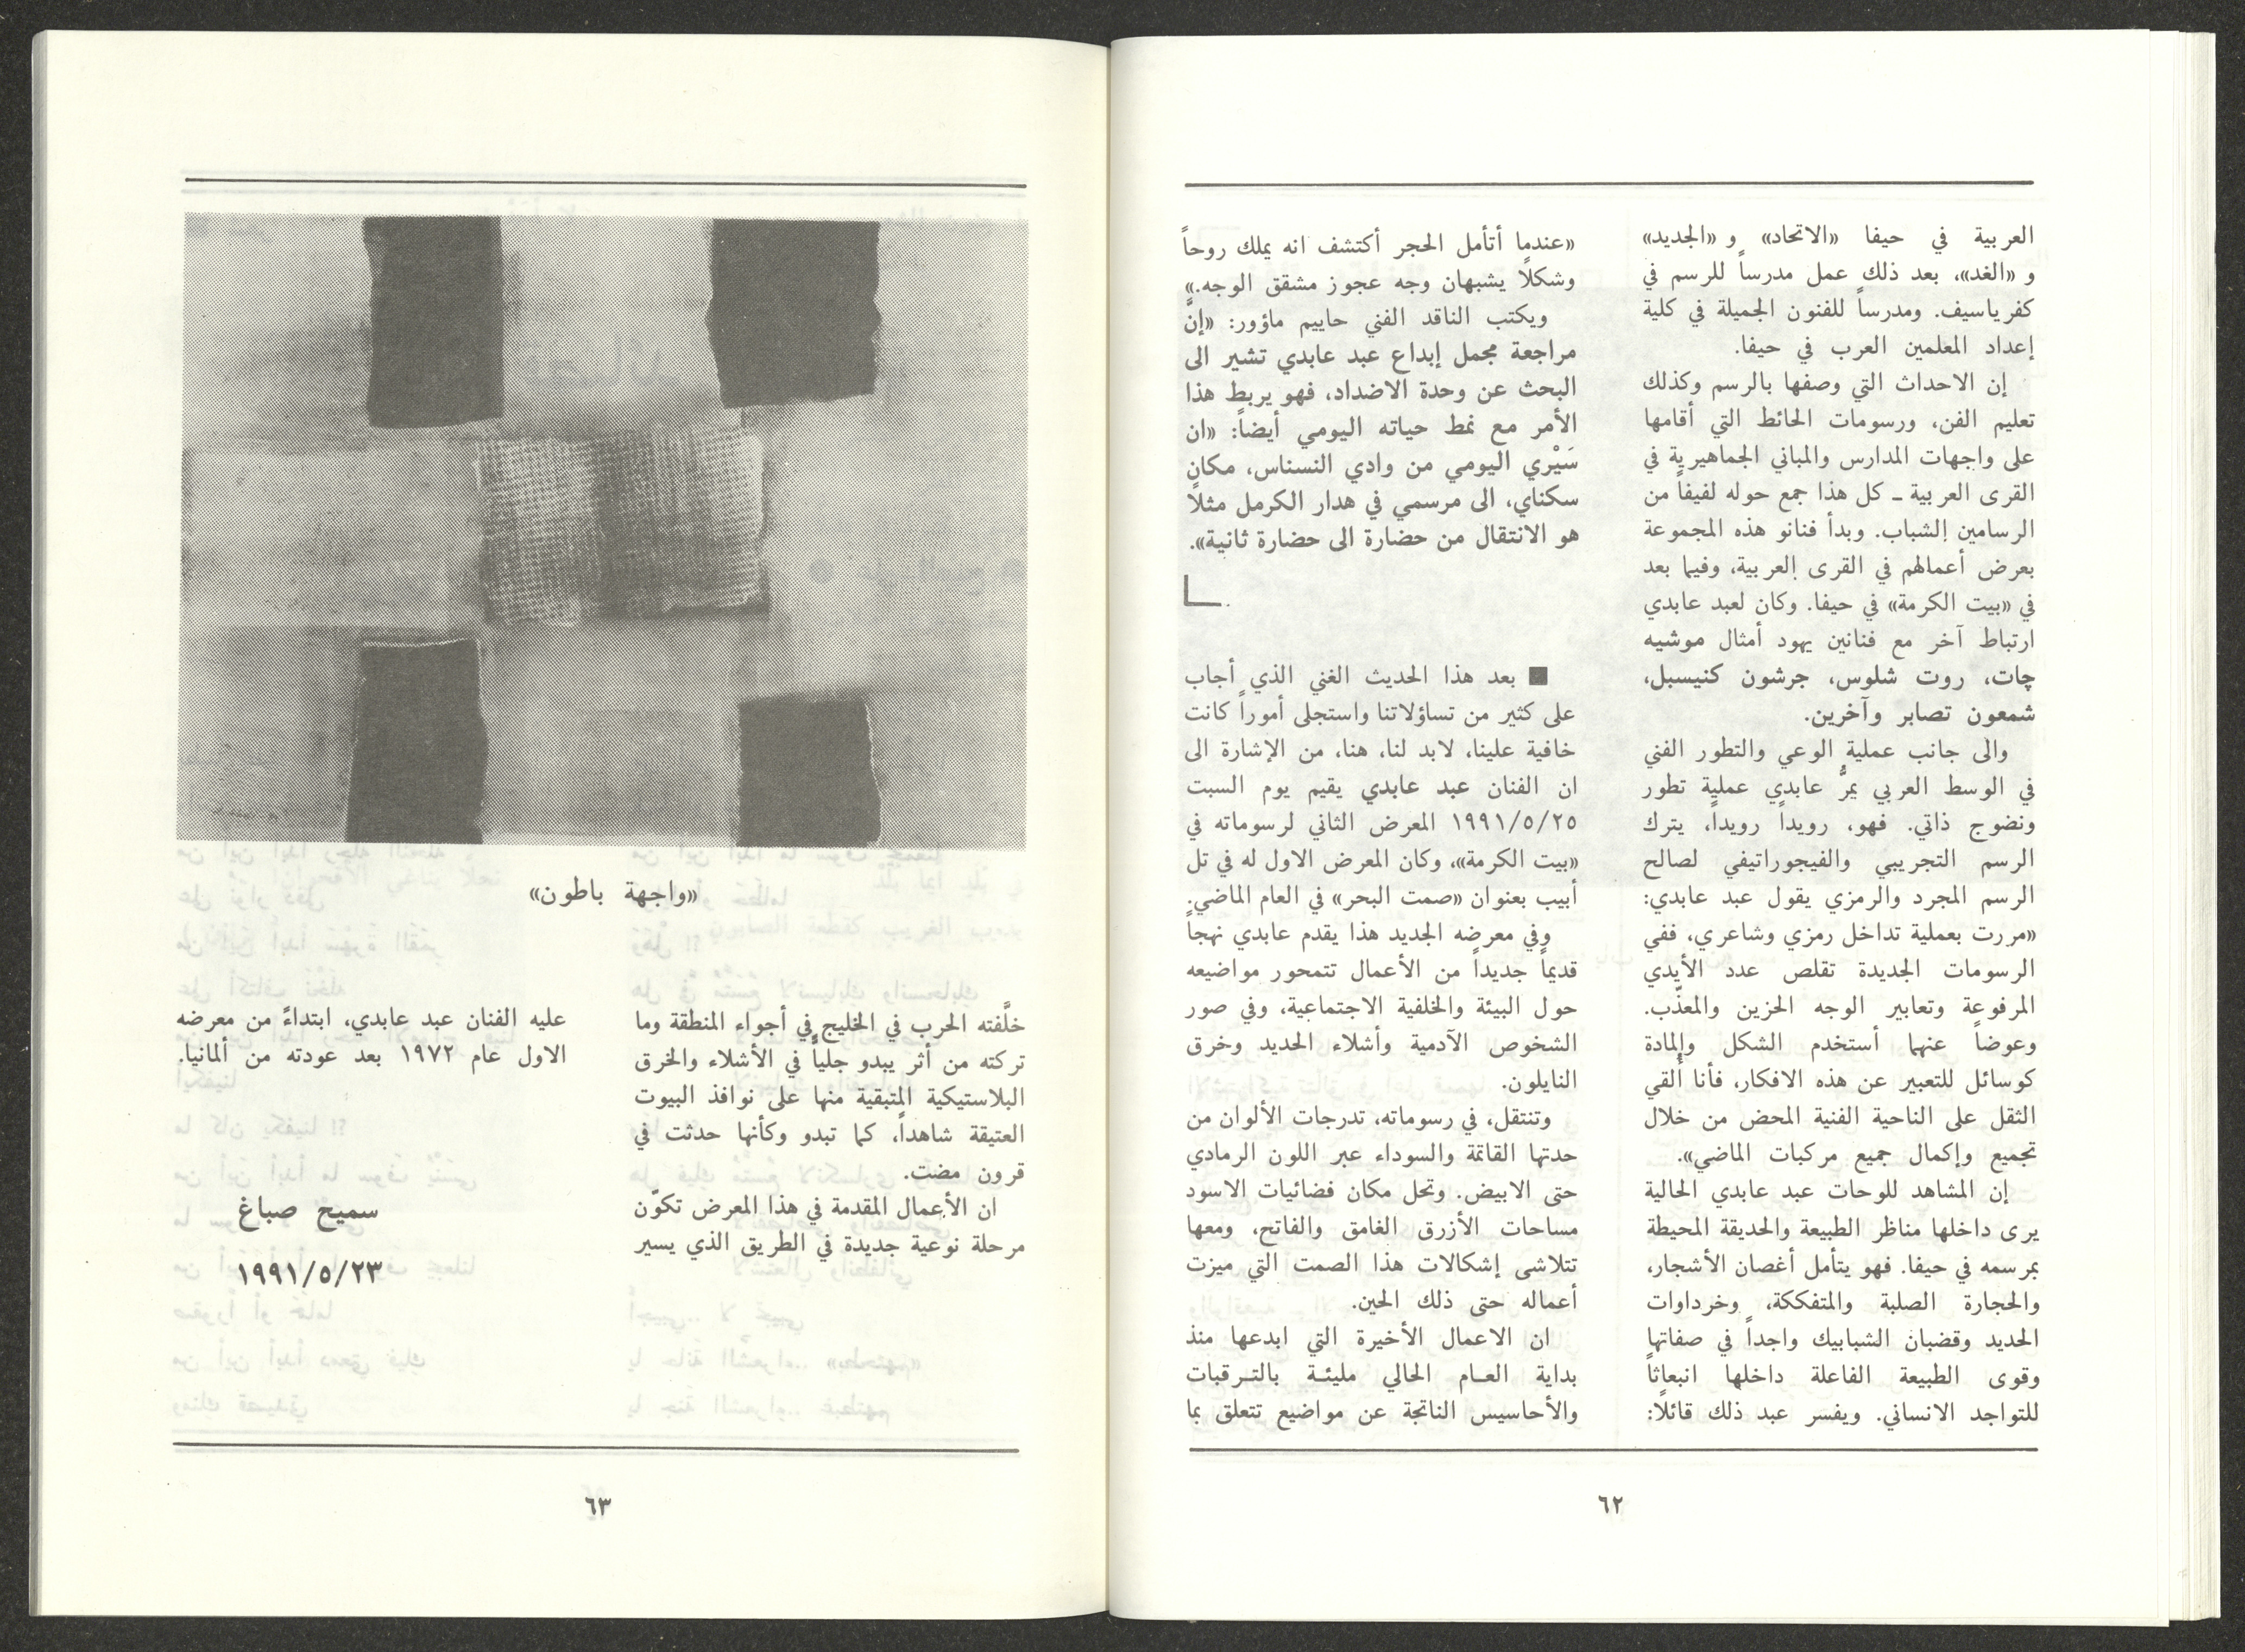 العربية في حيفا «الاتحاد» و «الجديد»
و «الغد»، بعد ذلك عمل مدرساً للرسم في
كفرياسيف. ومدرساً للفنون الجميلة في كلية
إعداد المعلمين العرب في حيفا.
إن الاحداث التي وصفها بالرسم وكذلك
تعليم الفن، ورسومات الحائط التي أقامها
على واجهات المدارس والمباني الجماهيرية في
القرى العربية ـ كل هذا جمع حوله لفيفاً من
الرسامين الشباب. وبدأ فنانو هذه المجموعة
بعرض أعمالهم في القرى العربية، وفيما بعد
في «بيت الكرمة» في حيفا. وكان لعبد عابدي
ارتباط آخر مع فنانين يهود أمثال موشيه
چات، روت شلوس، جرشون كنيسبل،
شمعون تصابر وآخرين.
والى جانب عملية الوعي والتطور الفني
في الوسط العربي يمرُّ عابدي عملية تطور
ونضوج ذاتي. فهو، رويداً رويداً، يترك
الرسم التجريبي والفيجوراتيفي لصالح
الرسم المجرد والرمزي يقول عبد عابدي:
«مررت بعملية تداخل رمزي وشاعري، ففي
الرسومات الجديدة تقلص عدد الأيدي
المرفوعة وتعابير الوجه الحزين والمعذّب.
وعوضاً عنهما أستخدم الشكل والمادة
كوسائل للتعبير عن هذه الافكار، فأنا أُلقي
الثقل على الناحية الفنية المحض من خلال
تجميع وإكمال جميع مركبات الماضي».
إن المشاهد للوحات عبد عابدي الحالية
يرى داخلها مناظر الطبيعة والحديقة المحيطة
بمرسمه في حيفا. فهو يتأمل أغصان الأشجار،
والحجارة الصلبة والمتفككة، وخرداوات
الحديد وقضبان الشبابيك واجداً في صفاتها
وقوى الطبيعة الفاعلة داخلها انبعاثاً
للتواجد الانساني. ويفسر عبد ذلك قائلًا:
«عندما أتأمل الحجر أكتشف انه يملك روحاً
وشكلًا يشبهان وجه عجوز مشقق الوجه.»
ويكتب الناقد الفني حاييم ماؤور: «إنَّ
مراجعة مجمل إبداع عبد عابدي تشير الى
البحث عن وحدة الاضداد، فهو يربط هذا
الأمر مع نمط حياته اليومي أيضاً: «ان
سَيْري اليومي من وادي النسناس، مكان
سكناي، الى مرسمي في هدار الكرمل مثلًا
هو الانتقال من حضارة الى حضارة ثانية».
■ بعد هذا الحديث الغني الذي أجاب
على كثير من تساؤلاتنا واستجلى أموراً كانت
خافية علينا، لابد لنا، هنا، من الإشارة الى
ان الفنان عبد عابدي يقيم يوم السبت
١٩٩١/٥/٢٥ المعرض الثاني لرسوماته في
«بيت الكرمة»، وكان المعرض الاول له في تل
أبيب بعنوان «صمت البحر» في العام الماضي.
وفي معرضه الجديد هذا يقدم عابدي نهجاً
قديماً جديداً من الأعمال تتمحور مواضيعه
حول البيئة والخلفية الاجتماعية، وفي صور
الشخوص الآدمية وأشلاء الحديد وخرق
النايلون.
وتنتقل، في رسوماته، تدرجات الألوان من
حدتها القاتمة والسوداء عبر اللون الرمادي
حتى الابيض. وتحل مكان فضائيات الاسود
مساحات الأزرق الغامق والفاتح، ومعها
تتلاشى إشكالات هذا الصمت التي ميزت
أعماله حتى ذلك الحين.
ان الاعمال الأخيرة التي ابدعها منذ
بداية العـام الحالي مليئـة بالتـرقبات
والأحاسيس الناتجة عن مواضيع تتعلق بما
٦٢
«واجهة باطون»
خلَّفته الحرب في الخليج في أجواء المنطقة وما
تركته من أثر يبدو جلياً في الأشلاء والخرق
البلاستيكية المتبقية منها على نوافذ البيوت
العتيقة شاهداً، كما تبدو وكأنها حدثت في
قرون مضت.
ان الأعمال المقدمة في هذا المعرض تكوّن
مرحلة نوعية جديدة في الطريق الذي يسير
عليه الفنان عبد عابدي، ابتداءً من معرضه
الاول عام ١٩٧٢ بعد عودته من ألمانيا.
سميح صباغ
١٩٩١/٥/٢٣
٦٣